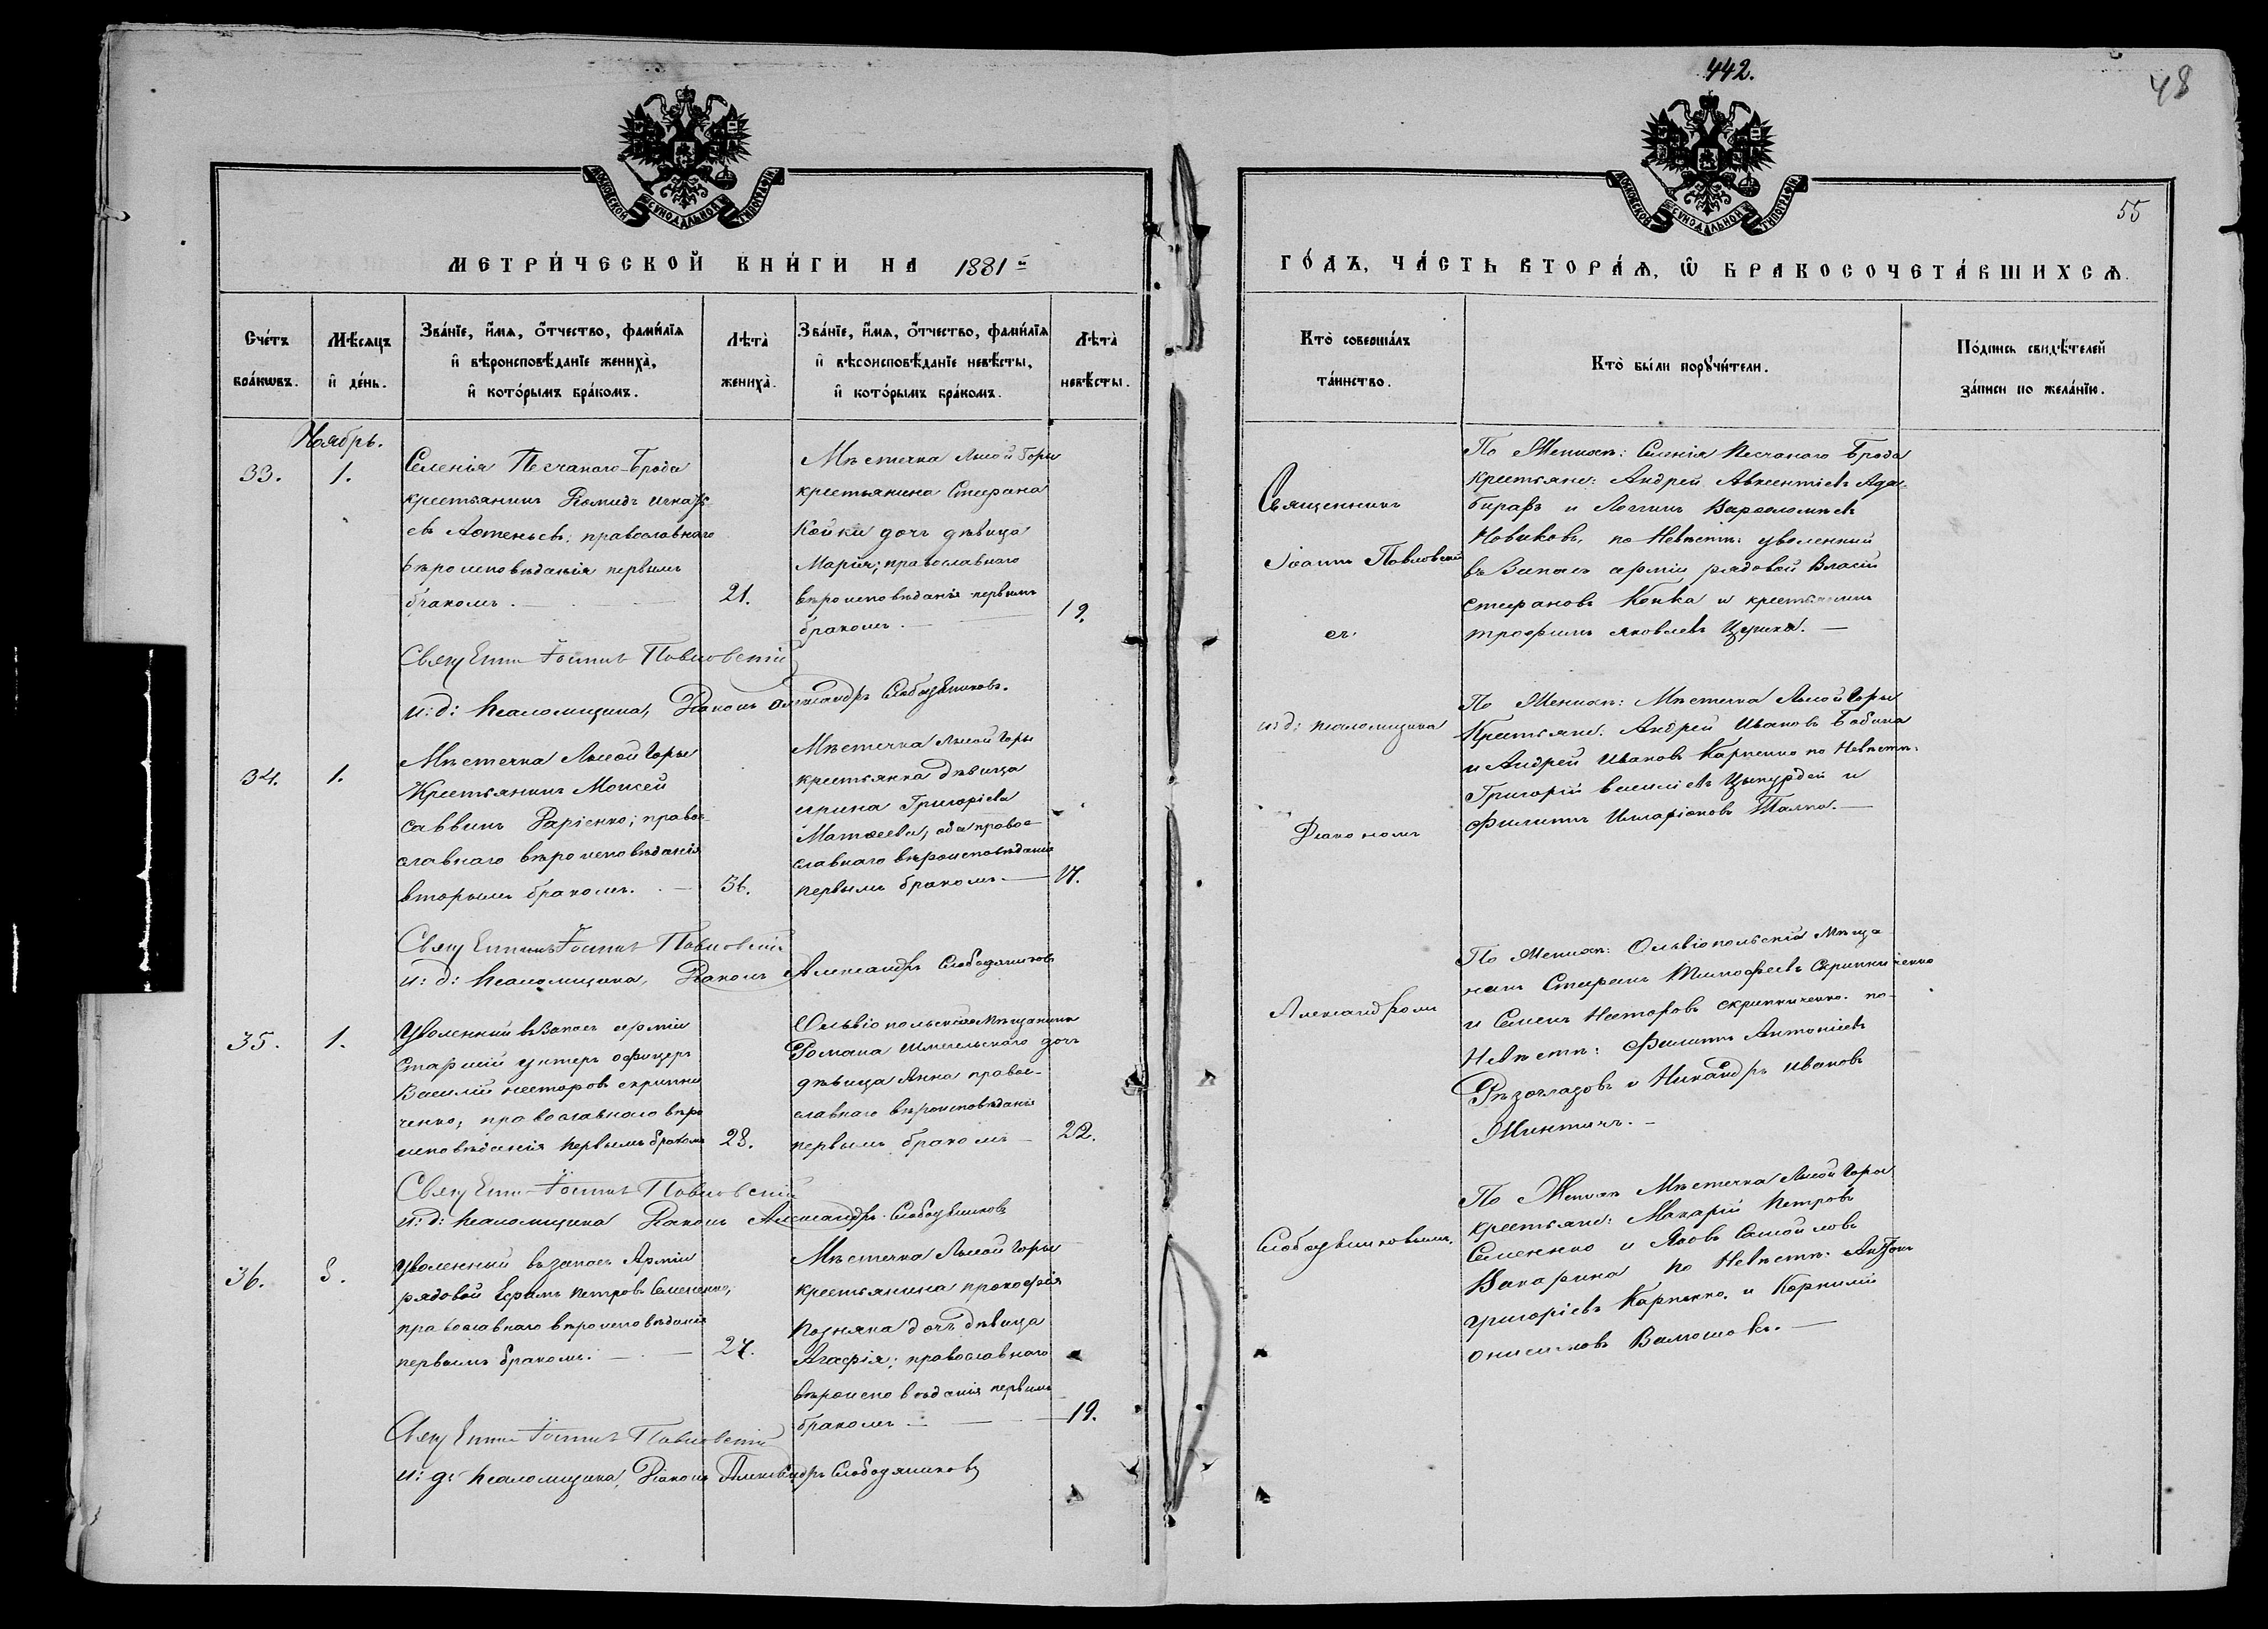 442.
48
55
МЕТРИ́ЧЕСКОЙ КНИ́ГИ НА 1881й
ГО́ДЪ, ЧА́СТЬ ВТОРА́Ѧ, Ѡ БРАКОСОЧЕТА́ВШИХСѦ.
Сче́тъ бра́кѡвъ.
Мѣ́сяцъ и де́нь.
Зва́нїе, и́мѧ, о́тчество, фами́лїѧ
и вѣроисповѣ́данїе жениха̀,
и кото́рымъ бра́комъ.
Лѣта̀ жениха̀.
Зва́нїе, и́мѧ, о́тчество, фами́лїѧ
и вѣроисповѣ́данїе невѣ́сты,
и кото́рымъ бра́комъ.
Лѣта̀ невѣ́сты.
Кто̀ соверша́лъ
та́инство.
Кто̀ бы́ли порꙋчи́тели.
По́дпись свидѣ́телей
за́писи по жела́нїю.
Ноябрь.
33.
1.
Селенія Песчаного-Брода
крестьянинъ Игнатъ
евъ православнаго
вѣроисповѣданія первымъ
бракомъ.
21.
Мѣстечка Лысой Горы
крестьянина Стефана
Койки дочь дѣвица
Марія; православнаго
вѣроисповѣданія первымъ
бракомъ.
19.
Священникъ Іоаннъ Павловскій
и: д: псаломщика, Діаконъ Александръ Слободяниковъ.
34.
1.
Мѣстечка Лысой Горы
Крестьянинъ Моисей
Саввинъ православ
славнаго вѣроисповѣданія
вторымъ бракомъ.
36.
Мѣстечка Лысой Горы
крестьянка дѣвица
Ирина Григоріева
Матвеева, оба право
славнаго вѣроисповѣданія
первымъ бракомъ.
17.
Священникъ Іоаннъ Павловскій
и: д: псаломщика, Діаконъ Александръ Слободяниковъ
35.
1.
Уволенный въ Запасъ арміи
Старшій унтеръ офицеръ
Василій Несторовъ Скрипни
ченко, православнаго вѣро
исповѣданія первымъ бракомъ
28.
Ольвіопольскаго Мѣщанина
Романа дочь
дѣвица Анна право
славнаго вѣроисповѣданія
первымъ бракомъ
22.
Священникъ Іоаннъ Павловскій
и: д: псаломщика Діаконъ Александръ Слободяниковъ
36.
8.
Уволенный въ запасъ Арміи
рядовой Ефимъ Петровъ Семененко,
православнаго вѣроисповѣданія
первымъ бракомъ.
27.
Мѣстечка Лысой Горы
крестьянина Прокофія
Позняка дочь дѣвица
Агафія; православнаго
вѣроисповѣданія первымъ
бракомъ
19.
Священникъ Іоаннъ Павловскій
и: д: псаломщика, Діаконъ Александръ Слободяниковъ
Священникъ
Іоаннъ Павловскій
съ
и: д: псаломщика
Діакономъ
Александромъ
Слободяниковымъ.
По Женихѣ: Селенія Песчаного Брода
крестьяне: Андрей Авксентіевъ
и Логинъ Варфоломѣевъ
Новиковъ, по Невѣстѣ: уволенный
въ Запасъ арміи рядовой Власій
Стефановъ Койка и крестьянинъ
Трофимъ Яковлевъ
По Женихѣ: Мѣстечка Лысой Горы
Крестьяне: Андрей Ивановъ Бабина
и Андрей Ивановъ Карпенко по Невѣстѣ:
Григорій Василіевъ и
Филиппъ Иларіоновъ
По Женихѣ: Ольвіопольскій Мѣща
нинъ Стефанъ Тимофеевъ Скрипниченко
и Семенъ Несторовъ Скрипниченко. по
Невѣстѣ: Филиппъ Антоніевъ
и Никандръ Ивановъ
По Женихѣ Мѣстечка Лысой Горы
крестьяне: Макарій Петровъ
Семененко и Яковъ Самойловъ
по Невѣстѣ: Антонъ
Григоріевъ Карпенко. и Корнилій
Онисимовъ